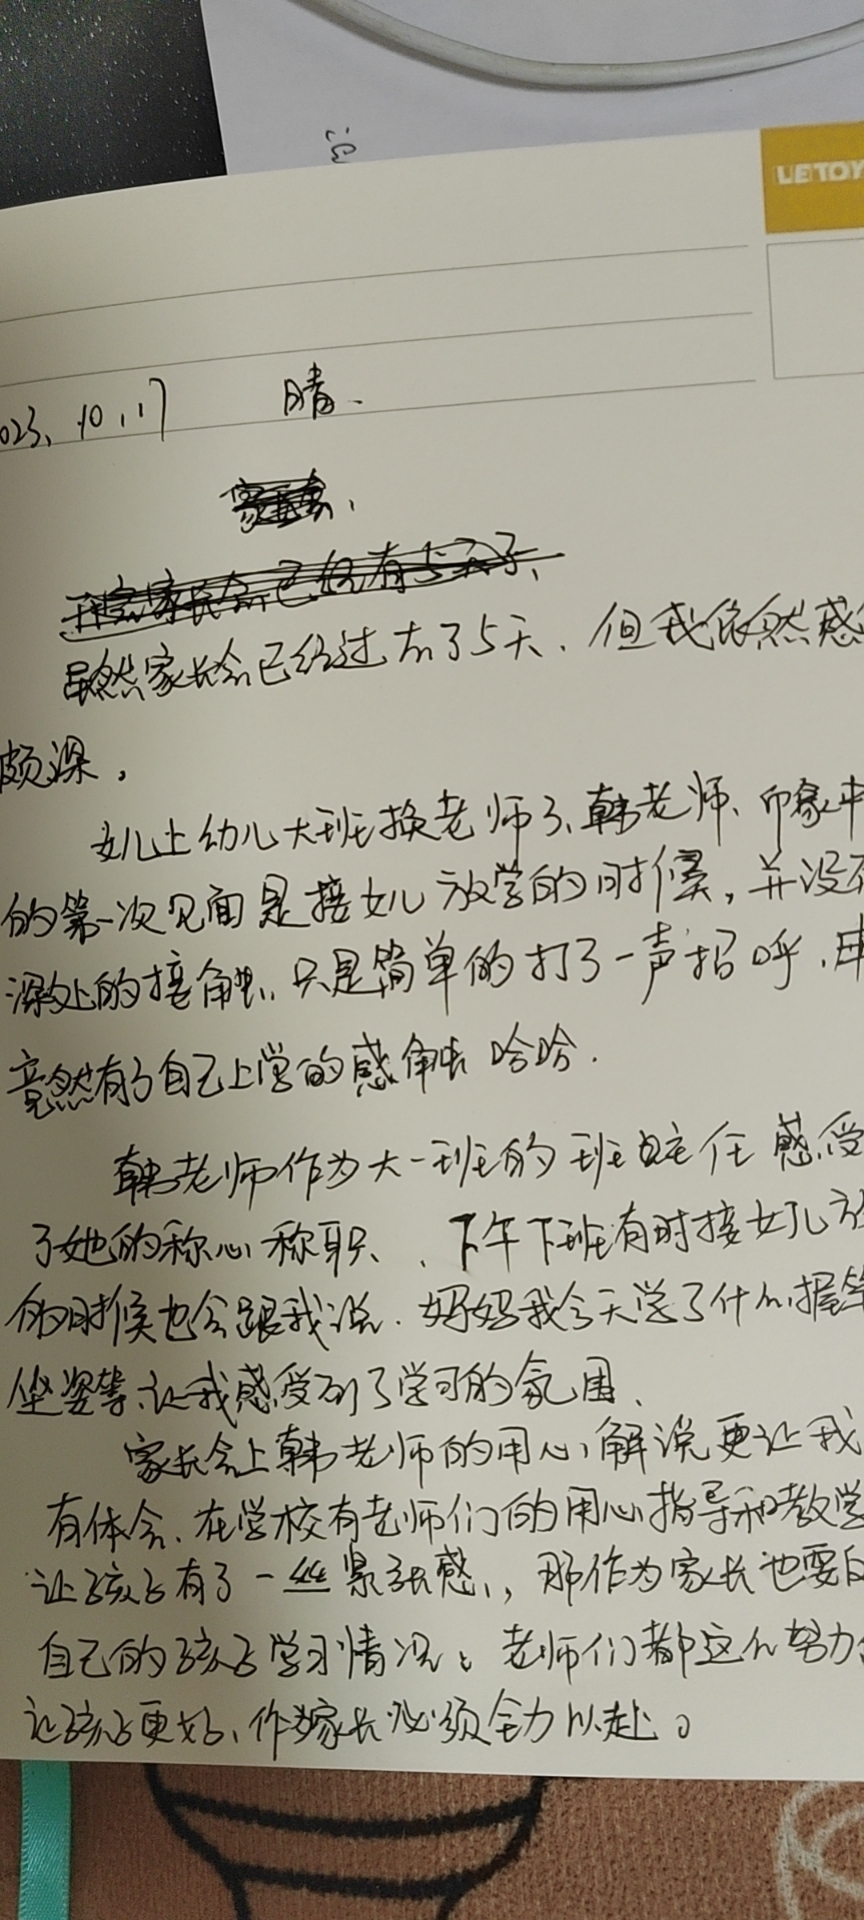 LETOY
023. 10. 17 晴.
虽然家长会已经过去了5天、但我依然感
颇深。
女儿上幼儿大班换老师了、韩老师、印象中
的第一次见面是接女儿放学的时候，并没有
深处的接触、只是简单的打了一声招呼、
竟然有了自己上学的感触 哈哈.
韩老师作为大一班的班主任 感受
了她的称心称职、、下午下班有时接女儿
的时候也会跟我说、妈妈我今天学了什么握笔
坐姿等、让我感受到了学习的氛围、
家长会上韩老师的用心解说更让我
有体会、在学校有老师们的用心指导和教学
让孩子有了一丝紧张感、，那作为家长也要
自己的孩子学习情况、老师们都这么努力
让孩子更好、作为家长必须全力以赴。